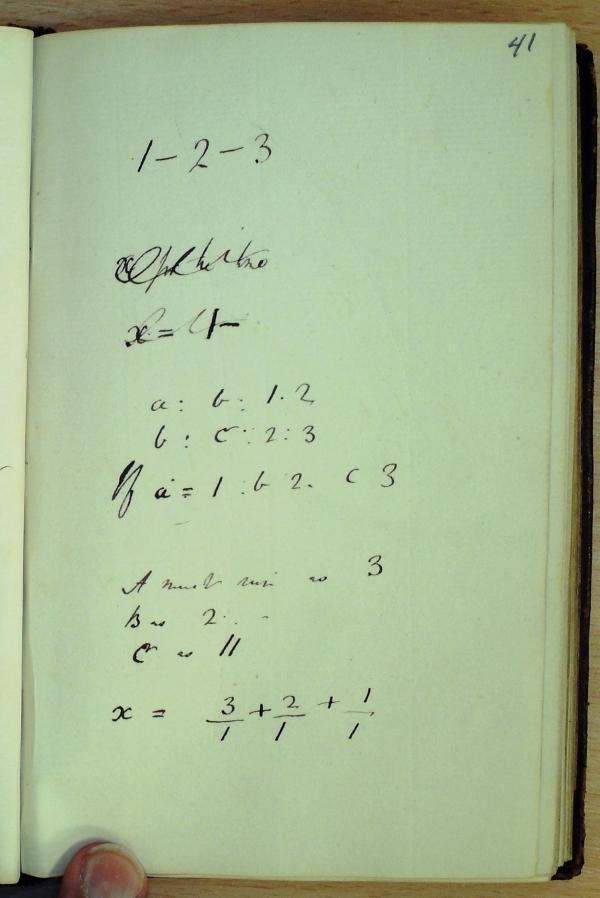 41
1 - 2 - 3
x = 4
a : b : 1 . 2
b : c : 2 : 3
If a = 1 : b 2 . c 3
A must as 3
B as 2 . .
C as 11
x = 3/1 + 2/1 + 1/1